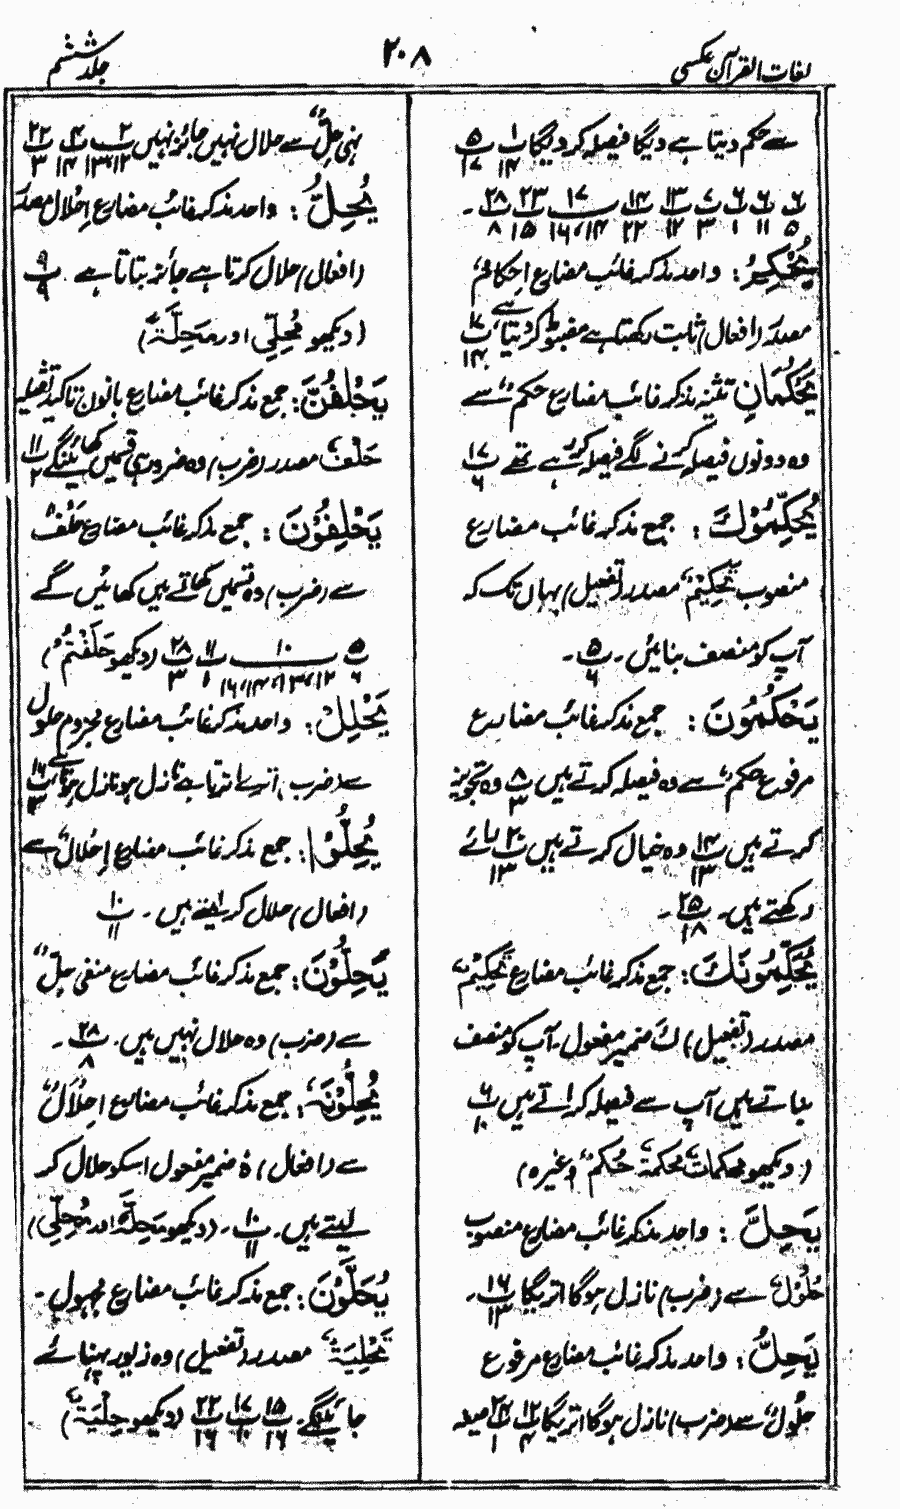 لغات القرآن عکسی
۲۰۸
جلد ششم
سے حکم دیتا ہے دیگا فیصلہ کر دیگا پ ۱/۱۴ پ ۵/۱۷
پ ۶/۵ پ ۶/۱۱ پ ۶/۱ پ ۷/۳ پ ۱۳/۱۲ پ ۱۴/۲۲ پ ۱۷/۱۴،۱۶ پ ۲۳/۱۵ پ ۲۸/۸ ۔
یُحْکِمُ : واحد مذکر غائب مضارع اِحکامٌ
مصدر (افعال) ثابت رکھتا ہے مضبوط کر دیتا ہے پ ۱۷/۱۴
یَحْکُمَانِ تثنیہ مذکر غائب مضارع حکمٌ سے
وہ دونوں فیصلہ کرنے لگے فیصلہ کر رہے تھے پ ۱۷/۶
یُحَکِّمُوْكَ : جمع مذکر غائب مضارع
منصوب تَحْکِیْمٌ مصدر (تفعیل) یہاں تک کہ
آپ کو منصف بنائیں ۔ پ ۵/۶ ۔
یَحْکُمُوْنَ : جمع مذکر غائب مضارع
مرفوع حکمٌ سے وہ فیصلہ کرتے ہیں پ ۸/۳ وہ تجویز
کرتے ہیں پ ۱۴/۱۳ وہ خیال کرتے ہیں پ ۲۰/۱۳ یا رائے
رکھتے ہیں ۔ پ ۲۵/۱۸ ۔
یُحَکِّمُوْنَكَ : جمع مذکر غائب مضارع تَحْکِیْمٌ
مصدر (تفعیل) كَ ضمیر مفعول ۔ آپ کو منصف
بناتے ہیں آپ سے فیصلہ کراتے ہیں پ ۶/۱۰
(دیکھو محکماتٌ مُحکمۃٌ حُکمٌ وغیرہ)
یَحِلَّ : واحد مذکر غائب مضارع منصوب
حُلُوْلٌ سے (ضرب) نازل ہوگا اتریگا پ ۱۶/۱۳ ۔
یَحِلُّ : واحد مذکر غائب مضارع مرفوع
حلُولٌ سے (ضرب) نازل ہوگا اتریگا پ ۱۲/۴ پ ۲۴/۱ صیغہ
نہی حِلٌّ سے حلال نہیں جائز نہیں پ ۲/۱۲،۱۳ پ ۴/۱۴ پ ۲۲/۳
یُحِلُّ : واحد مذکر غائب مضارع اِحْلال مصدر
(افعال) حلال کرتا ہے جائز بتاتا ہے پ ۹/۹
(دیکھو مُحِلِّی اور مَحِلَّۃٌ)
یَحْلِفُنَّ : جمع مذکر غائب مضارع بانون تاکید ثقیلہ
حَلْفٌ مصدر (ضرب) وہ ضرور ہی قسمیں کھائینگے پ ۱۱/۲
یَحْلِفُوْنَ : جمع مذکر غائب مضارع حَلْفٌ
سے (ضرب) وہ قسمیں کھاتے ہیں کھائیں گے
پ ۵/۶ پ ۱۰/۱۲،۱۳،۱۴،۱۶ پ ۱۱/۱ پ ۲۸/۳ (دیکھو حَلَفْتُمْ)
یَحْلِلْ : واحد مذکر غائب مضارع مجزوم حلول
سے (ضرب) اترے اترتا ہے نازل ہو نازل ہوتا ہے پ ۱۶/۱۳
یُحِلُّوْا : جمع مذکر غائب مضارع اِحْلالٌ سے
(افعال) حلال کر لیتے ہیں ۔ پ ۱۰/۱۱
یَحِلُّوْنَ : جمع مذکر غائب مضارع منفی حِلٌّ
سے (ضرب) وہ حلال نہیں ہیں ۔ پ ۲۸/۸ ۔
یُحِلُّوْنَہٗ : جمع مذکر غائب مضارع اِحْلَالٌ
سے (افعال) ہٗ ضمیر مفعول اسکو حلال کر
لیتے ہیں ۔ پ ۱۰/۱۱ ۔ (دیکھو مَحِلَّۃٌ اور مُحِلِّی)
یُحَلَّوْنَ : جمع مذکر غائب مضارع مجہول ۔
تَحْلِیَۃٌ مصدر (تفعیل) وہ زیور پہنائے
جائینگے ۔ پ ۱۵/۱۶ پ ۱۷/۱۰ پ ۲۲/۱۶ (دیکھو حِلْیَۃٌ)